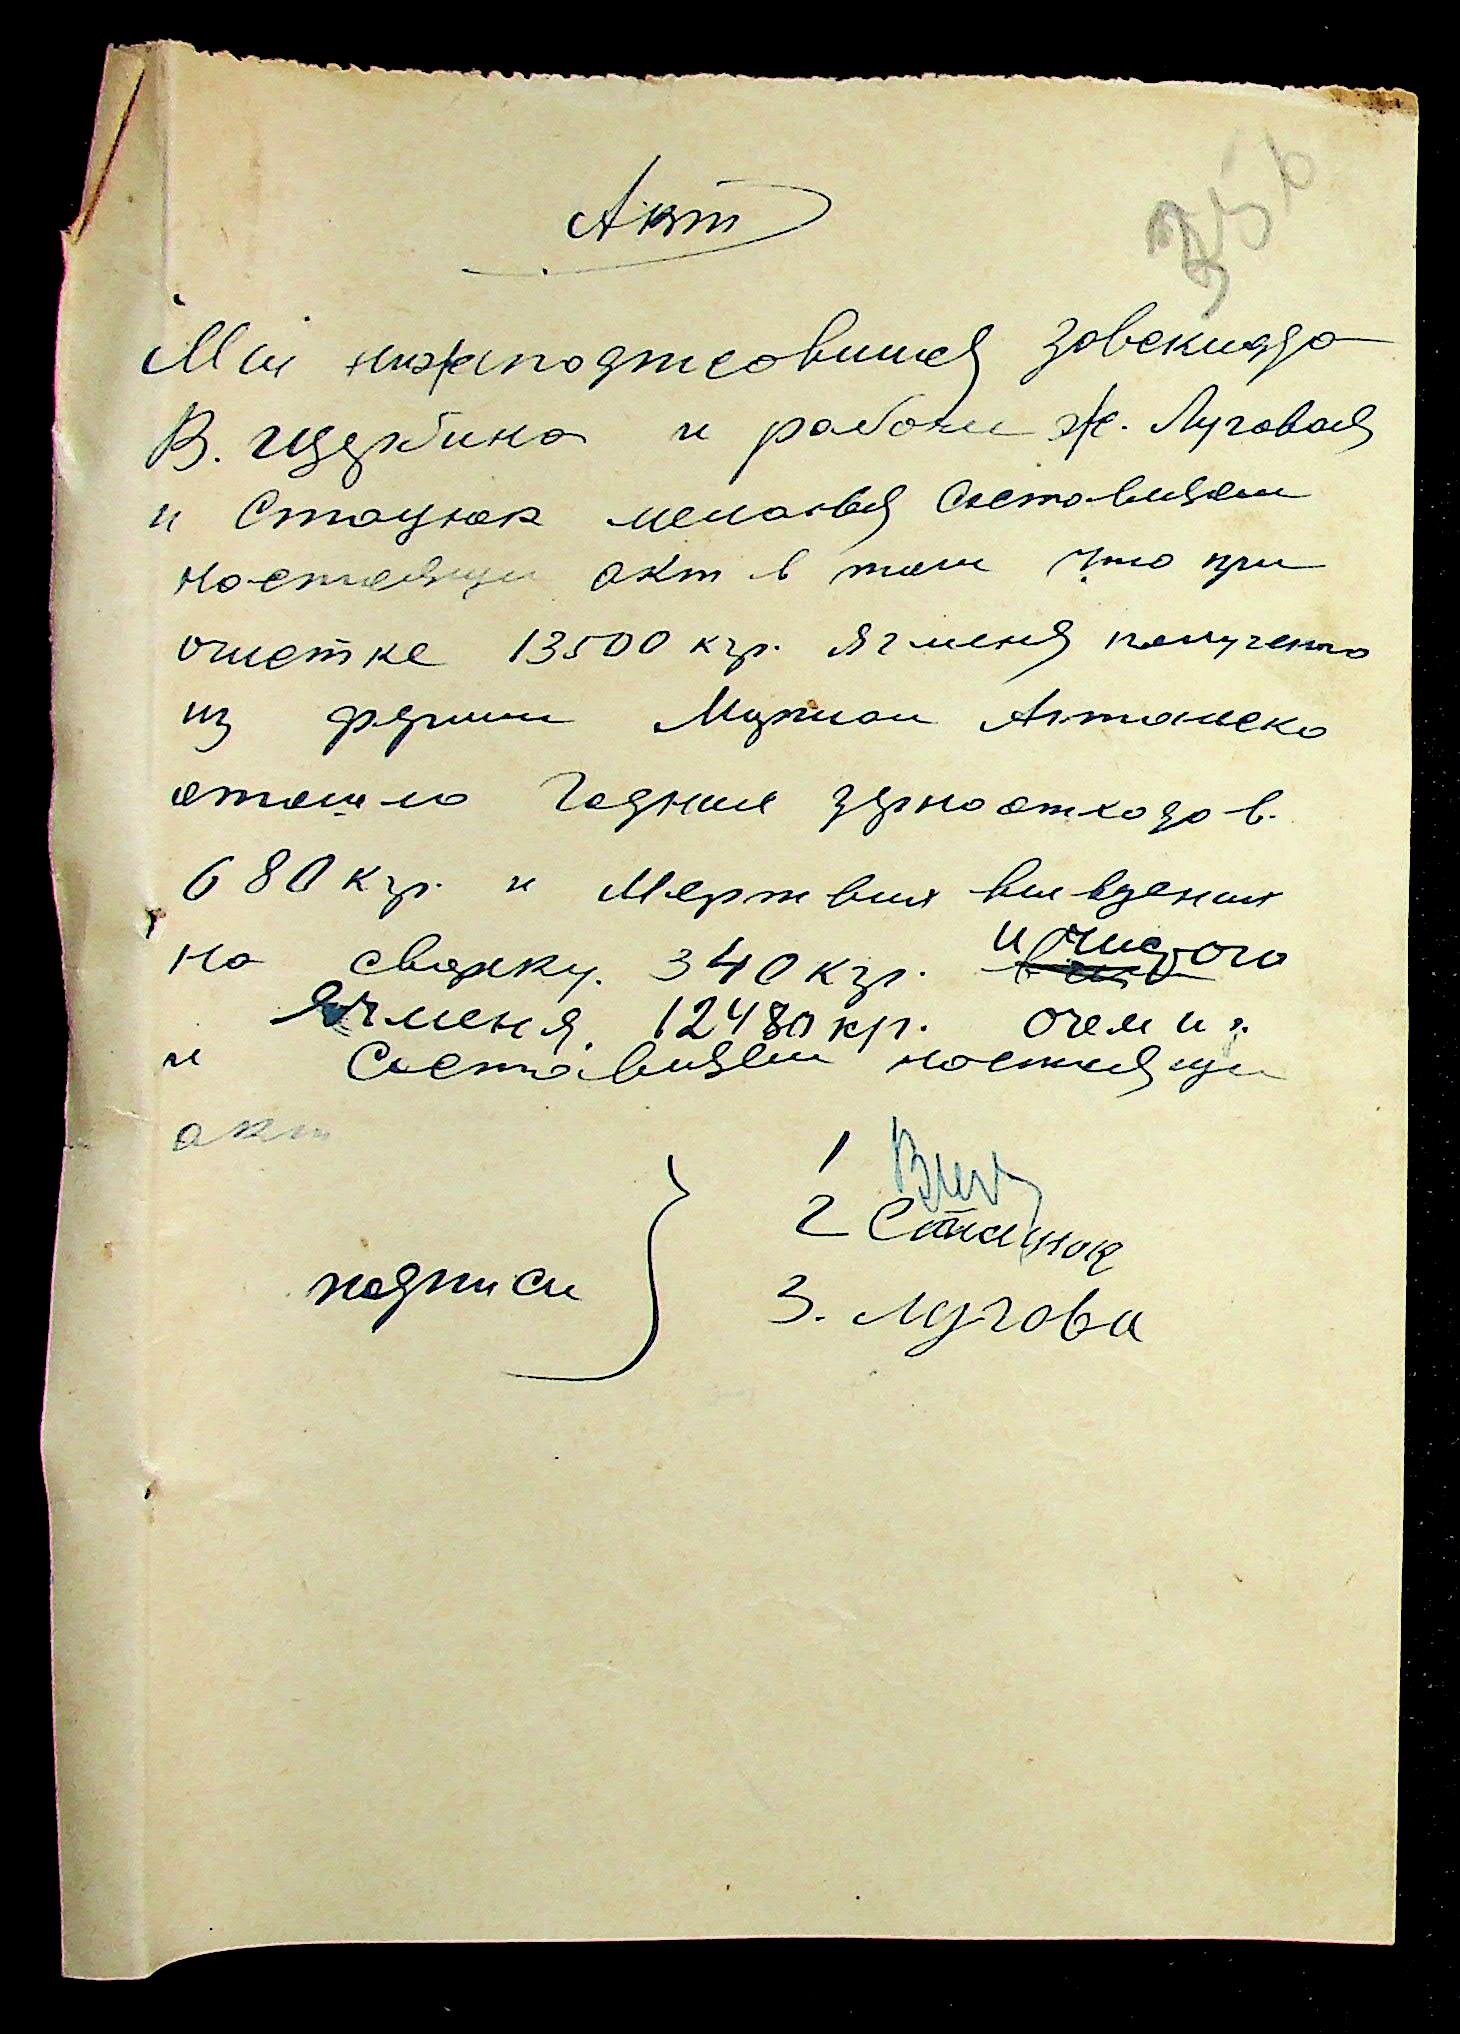 Акт
Мы нижеподписовшися зовсклада
В. Щербина и рабочи Ж. Луговая
и Стацюк меланья Составили
ностоящи акт в том что при
очистке 13500 кгр. ячменя получено
из ферми Антонеско
отошло Годних зерноотходов.
680 кгр. и Мертвих вивезених
но свалку. 340 кгр. и чистого
ячменя. 12480 кгр. очем и
и Составили ностоящи
акт
подписи
1
2 Стацюк
3. Лугова